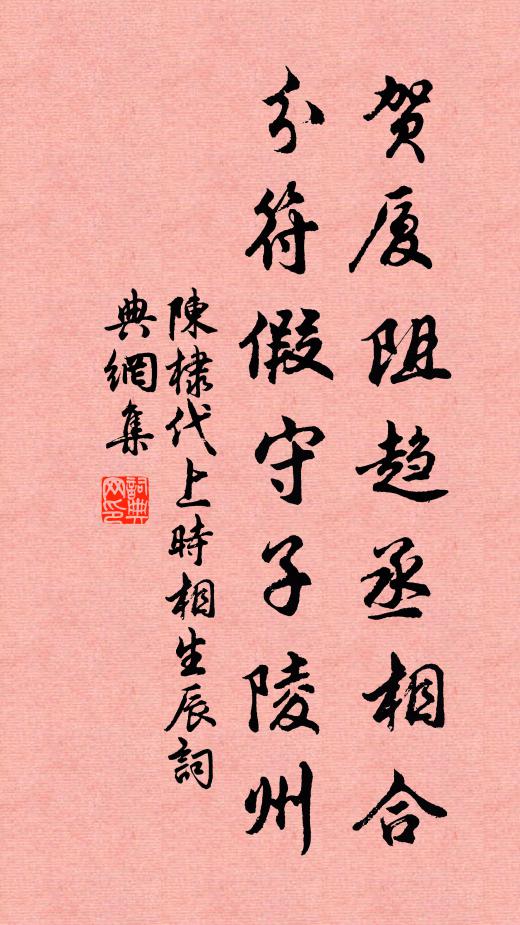 贺厦阻趋丞相合
分符假守子陵州
陳棣代上時相生辰詞
典網集
詞典网印